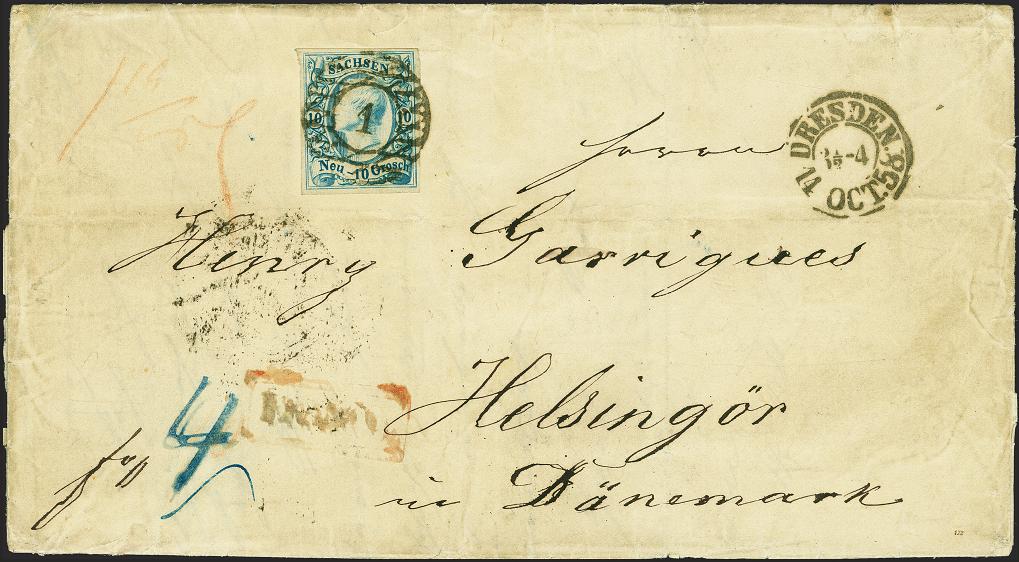 SACHSEN
10 1 10
Neu-10 Grosch.
DRESDEN.
14 OCT. 58
Herrn
Henry Garrigues
Helsingör
in Dänemark
4
122